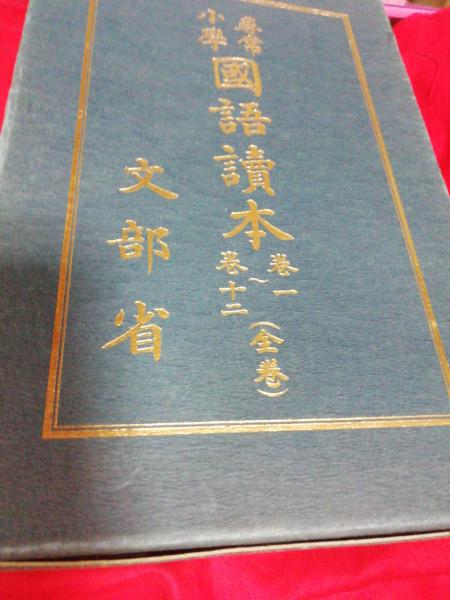 尋常
小學
國語讀本
卷一
~
卷十二
(全卷)
文部省